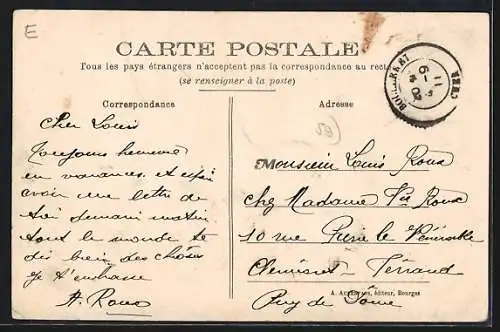 E
CARTE POSTALE
Tous les pays étrangers n'acceptent pas la correspondance au recto
(se renseigner à la poste)
Correspondance
Adresse
Cher Louis
Toujours heureux
en vacances, et espère
avoir une lettre de
toi demain matin
tout le monde te
dis bien des choses
Je t'embrasse
A. Roux
Monsieur Louis Roux
chez Madame Vve Roux
10 rue Pierre le Vénérable
Clermont-Ferrand
Puy de Dôme
éditeur, Bourges
CHER